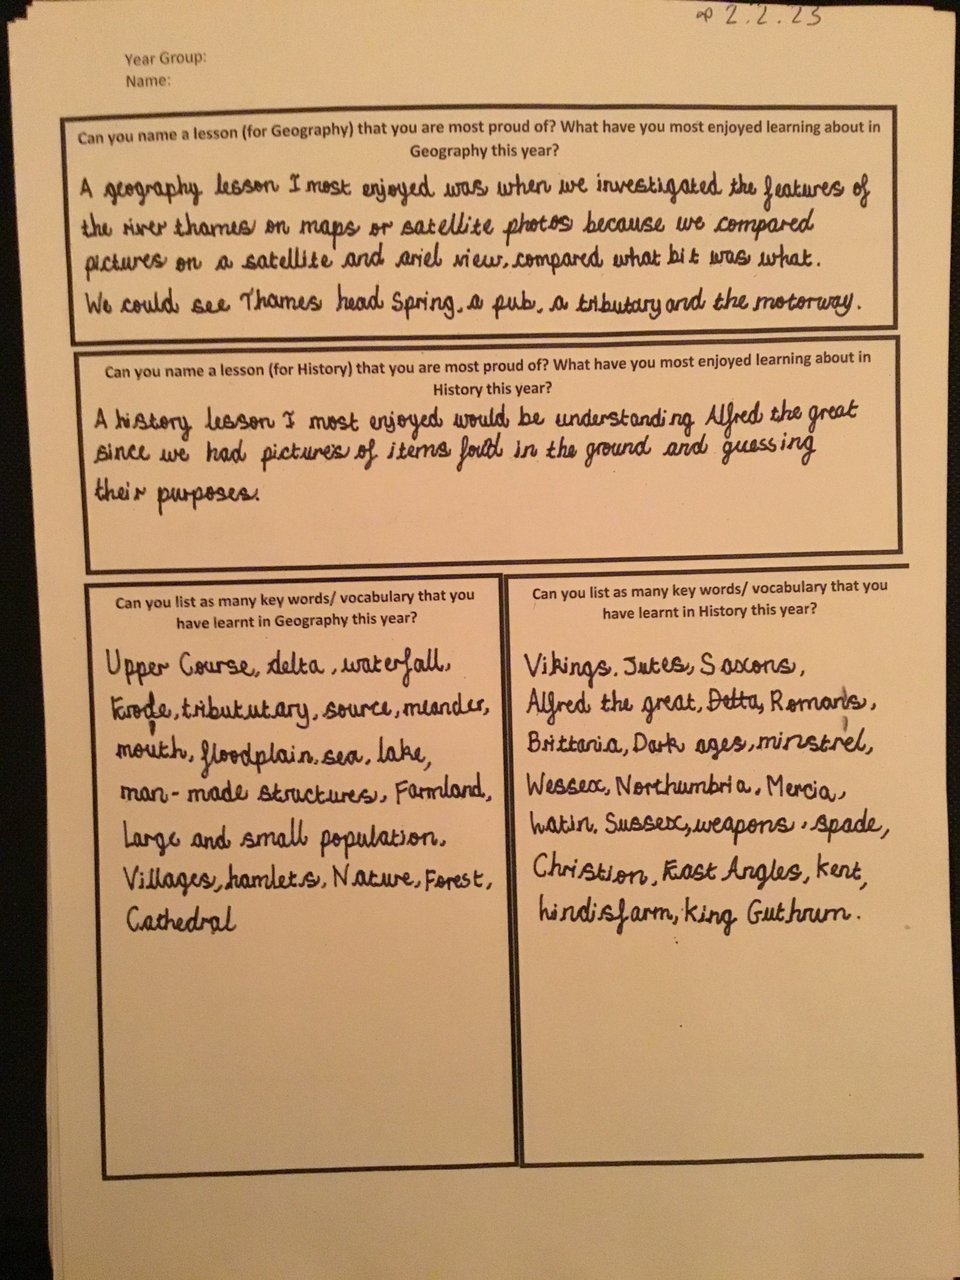 2.2.23
Year Group:
Name:
Can you name a lesson (for Geography) that you are most proud of? What have you most enjoyed learning about in
Geography this year?
A geography lesson I most enjoyed was when we investigated the features of
the river thames on maps or satellite photos because we compared
pictures on a satellite and ariel view, compared what bit was what.
We could see Thames head Spring, a pub, a tributary and the motorway.
Can you name a lesson (for History) that you are most proud of? What have you most enjoyed learning about in
History this year?
A history lesson I most enjoyed would be understanding Alfred the great
since we had pictures of items in the ground and guessing
their purposes.
Can you list as many key words/ vocabulary that you
have learnt in Geography this year?
Upper Course, delta, waterfall,
Erode, tribututary, source, meander,
mouth, floodplain, sea, lake,
man-made structures, Farmland,
Large and small population,
Villages, hamlets, Nature, Forest,
Cathedral
Can you list as many key words/ vocabulary that you
have learnt in History this year?
Vikings, Jutes, Saxons,
Alfred the great, Delta, Romans,
Brittania, Dark ages, minstrel,
Wessex, Northumbria, Mercia,
Latin, Sussex, weapons, spade,
Christion, East Angles, Kent,
hindisfarm, king Guthrum.